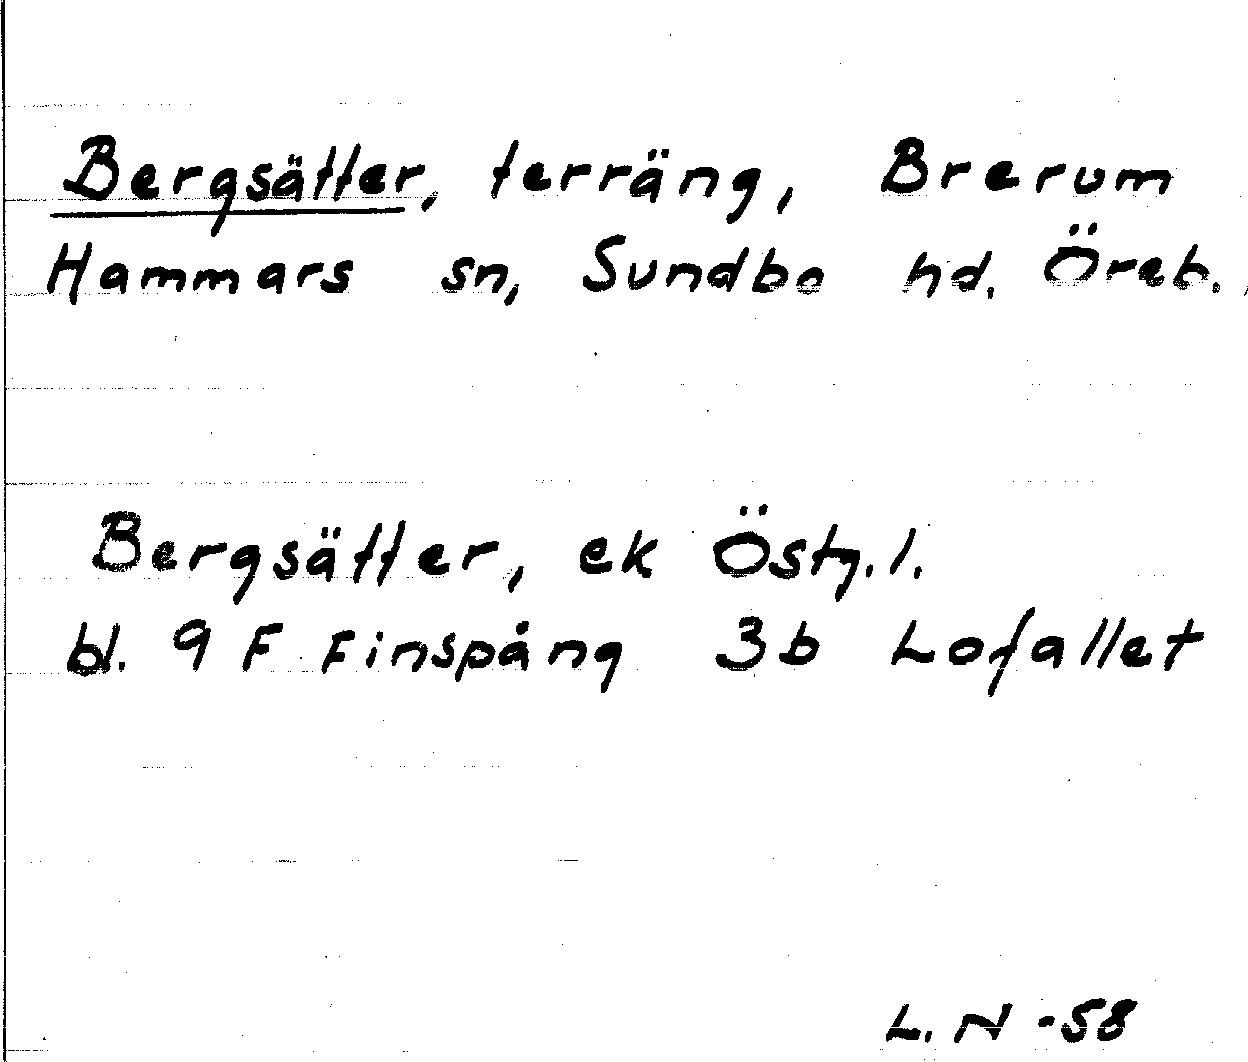 Bergsätter, terräng, Brerum
Hammars sn, Sundbo hd. Öreb.
Bergsätter, ek Östg.l.
bl. 9 F Finspång 3b Lofallet
L. N -58